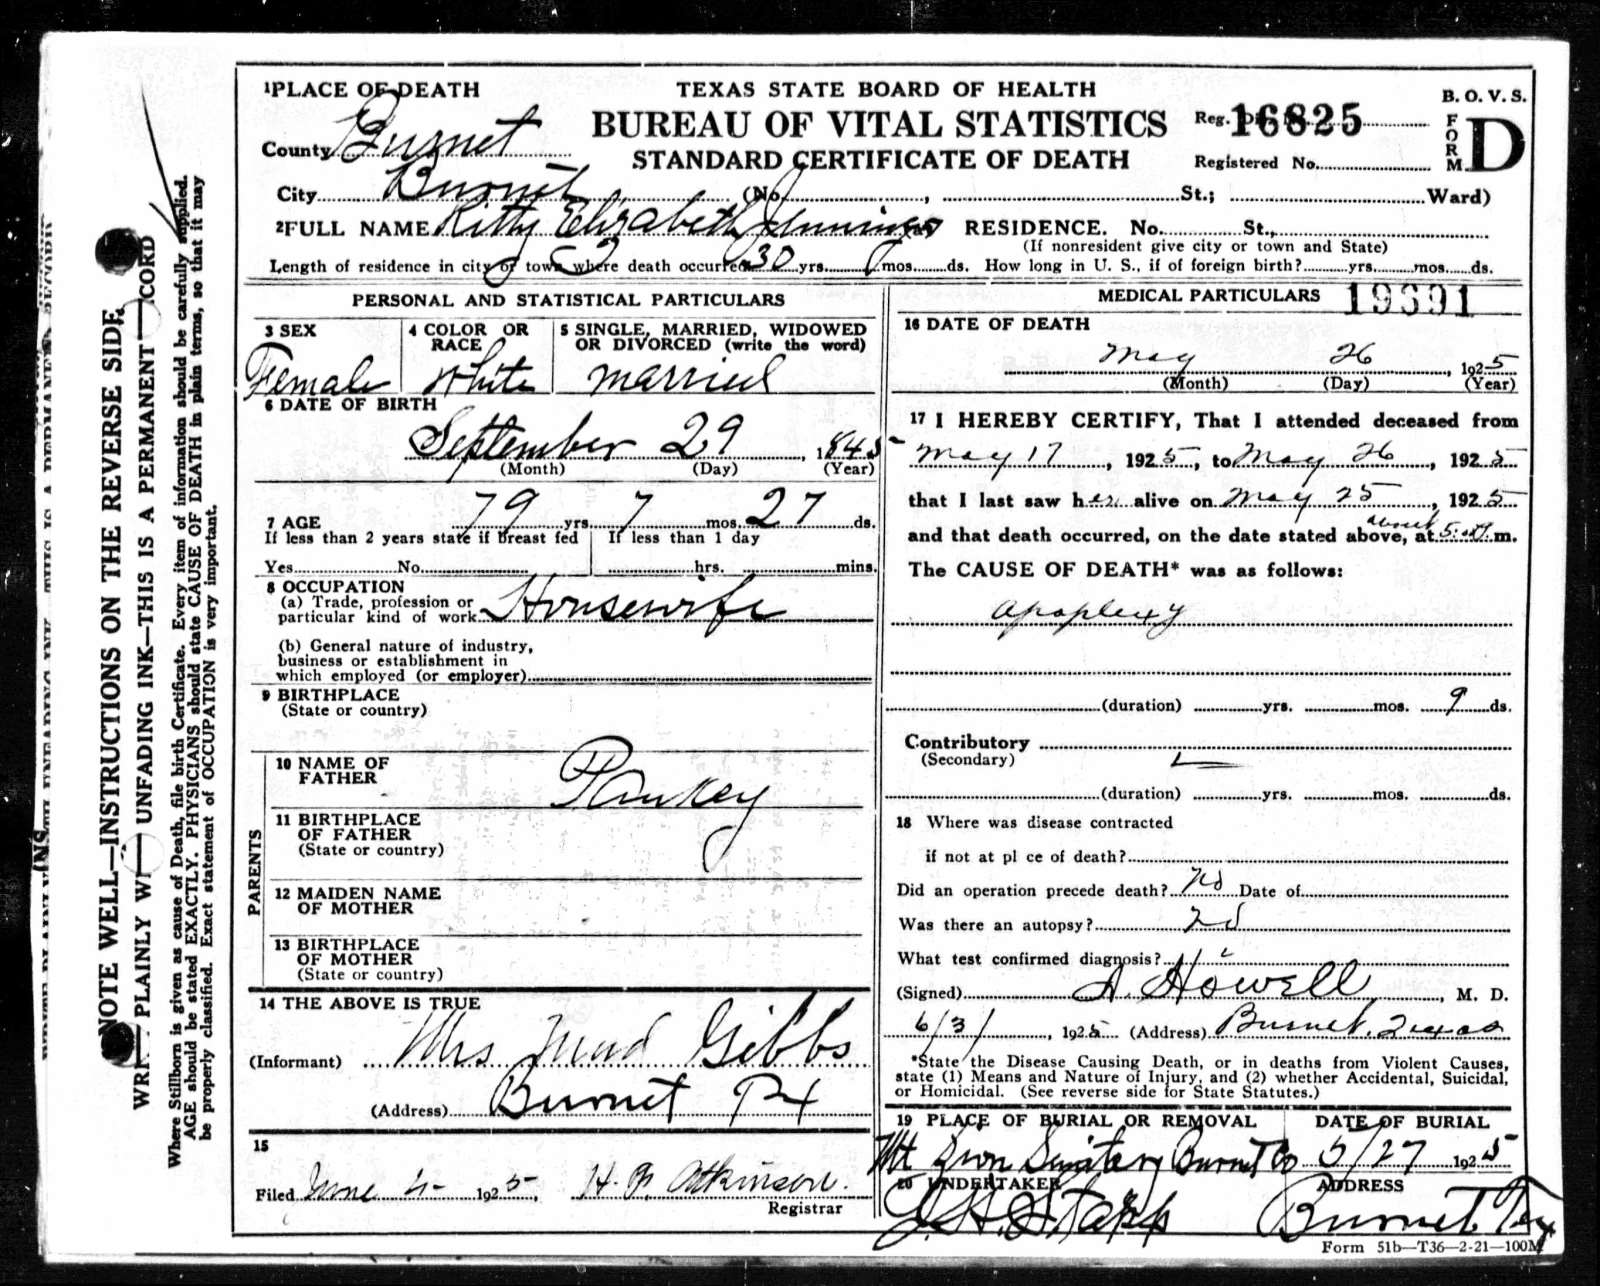 NOTE WELL—INSTRUCTIONS ON THE REVERSE SIDE
PLAINLY UNFADING INK—THIS IS A PERMANENT
Where Stillborn is given as cause of Death, file birth Certificate. Every item of information should be carefully supplied.
AGE should be stated EXACTLY. PHYSICIANS should state CAUSE OF DEATH in plain terms, so that it may
be properly classified. Exact statement of OCCUPATION is very important.
1 PLACE OF DEATH
County Burnet
City Burnet (No. , St.; Ward)
TEXAS STATE BOARD OF HEALTH
BUREAU OF VITAL STATISTICS
STANDARD CERTIFICATE OF DEATH
Reg. 16825
Registered No.
B. O. V. S.
FORM D
2 FULL NAME Kitty Elizabeth Jennings RESIDENCE. No. St.,
(If nonresident give city or town and State)
Length of residence in city or town where death occurred 30 yrs. mos. ds. How long in U. S., if of foreign birth? yrs. mos. ds.
PERSONAL AND STATISTICAL PARTICULARS
3 SEX
Female
4 COLOR OR RACE
White
5 SINGLE, MARRIED, WIDOWED
OR DIVORCED (write the word)
married
6 DATE OF BIRTH
September 29, 1845
(Month) (Day) (Year)
7 AGE 79 yrs. 7 mos. 27 ds.
If less than 2 years state if breast fed If less than 1 day
Yes No hrs. mins.
8 OCCUPATION
(a) Trade, profession or
particular kind of work Housewife
(b) General nature of industry,
business or establishment in
which employed (or employer)
9 BIRTHPLACE
(State or country)
PARENTS
10 NAME OF
FATHER Pankey
11 BIRTHPLACE
OF FATHER
(State or country)
12 MAIDEN NAME
OF MOTHER
13 BIRTHPLACE
OF MOTHER
(State or country)
14 THE ABOVE IS TRUE
(Informant) Mrs Gibbs
(Address) Burnet
15
Filed June 4 1925, H. F. Atkinson.
Registrar
MEDICAL PARTICULARS 19691
16 DATE OF DEATH
May 26, 1925
(Month) (Day) (Year)
17 I HEREBY CERTIFY, That I attended deceased from
May 17, 1925, to May 26, 1925
that I last saw her alive on May 25, 1925
and that death occurred, on the date stated above, at about m.
The CAUSE OF DEATH* was as follows:
apoplexy
(duration) yrs. mos. 9 ds.
Contributory
(Secondary)
(duration) yrs. mos. ds.
18 Where was disease contracted
if not at pl ce of death?
Did an operation precede death? No Date of
Was there an autopsy? No
What test confirmed diagnosis?
(Signed) A. Howell, M. D.
6/3/, 1925 (Address) Burnet, Texas
*State the Disease Causing Death, or in deaths from Violent Causes,
state (1) Means and Nature of Injury, and (2) whether Accidental, Suicidal,
or Homicidal. (See reverse side for State Statutes.)
19 PLACE OF BURIAL OR REMOVAL DATE OF BURIAL
Mt Zion Burnet Co 5/27 1925
20 UNDERTAKER ADDRESS
J. H. Stapp Burnet, Tex
Form 51b—T36—2-21—100M